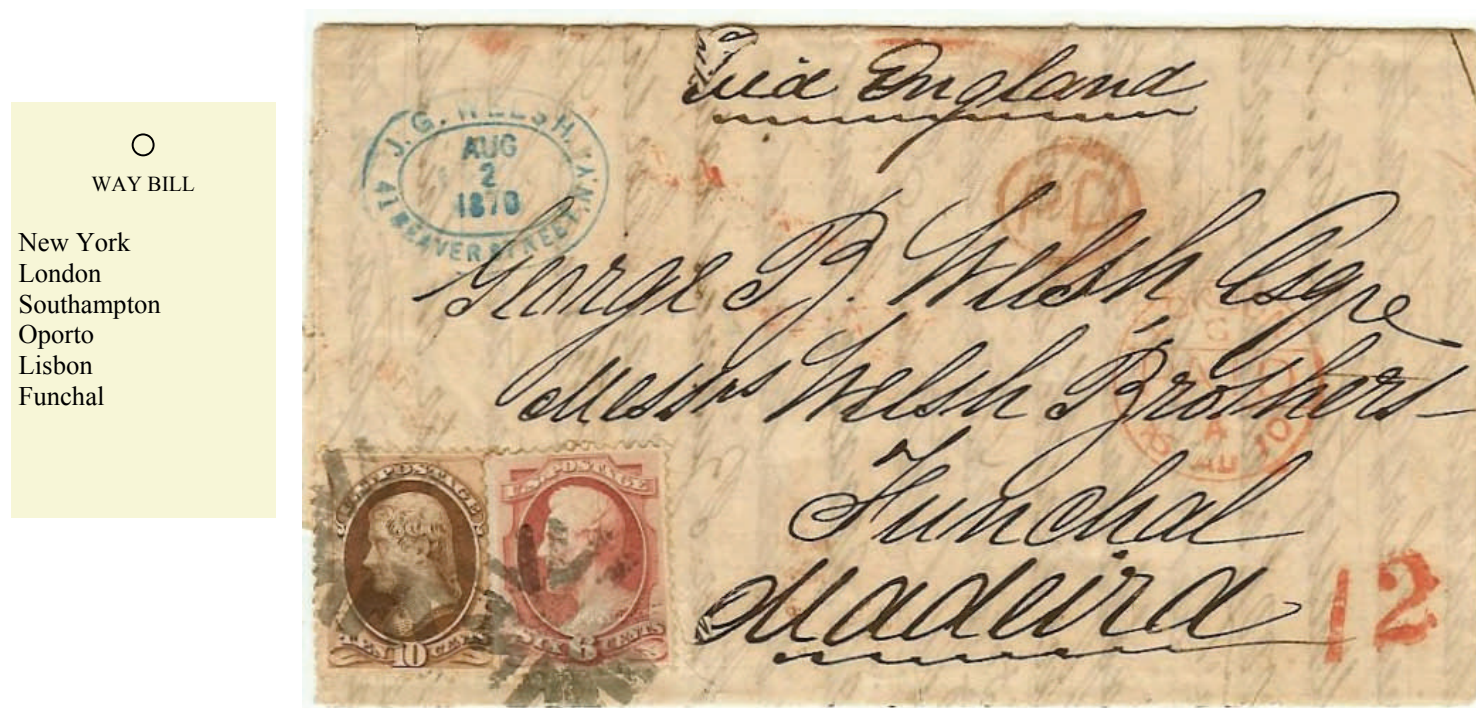 WAY BILL
New York
London
Southampton
Oporto
Lisbon
Funchal
Via England
J. G. WELSH. N.Y.
AUG
2
1870
41 BEAVER STREET
PD
George B. Welsh Esqre
Messrs Welsh Brothers
Funchal
Madeira
PAID
A
10 AU 70
12
U.S. POSTAGE
TEN 10 CENTS
U.S. POSTAGE
SIX 6 CENTS